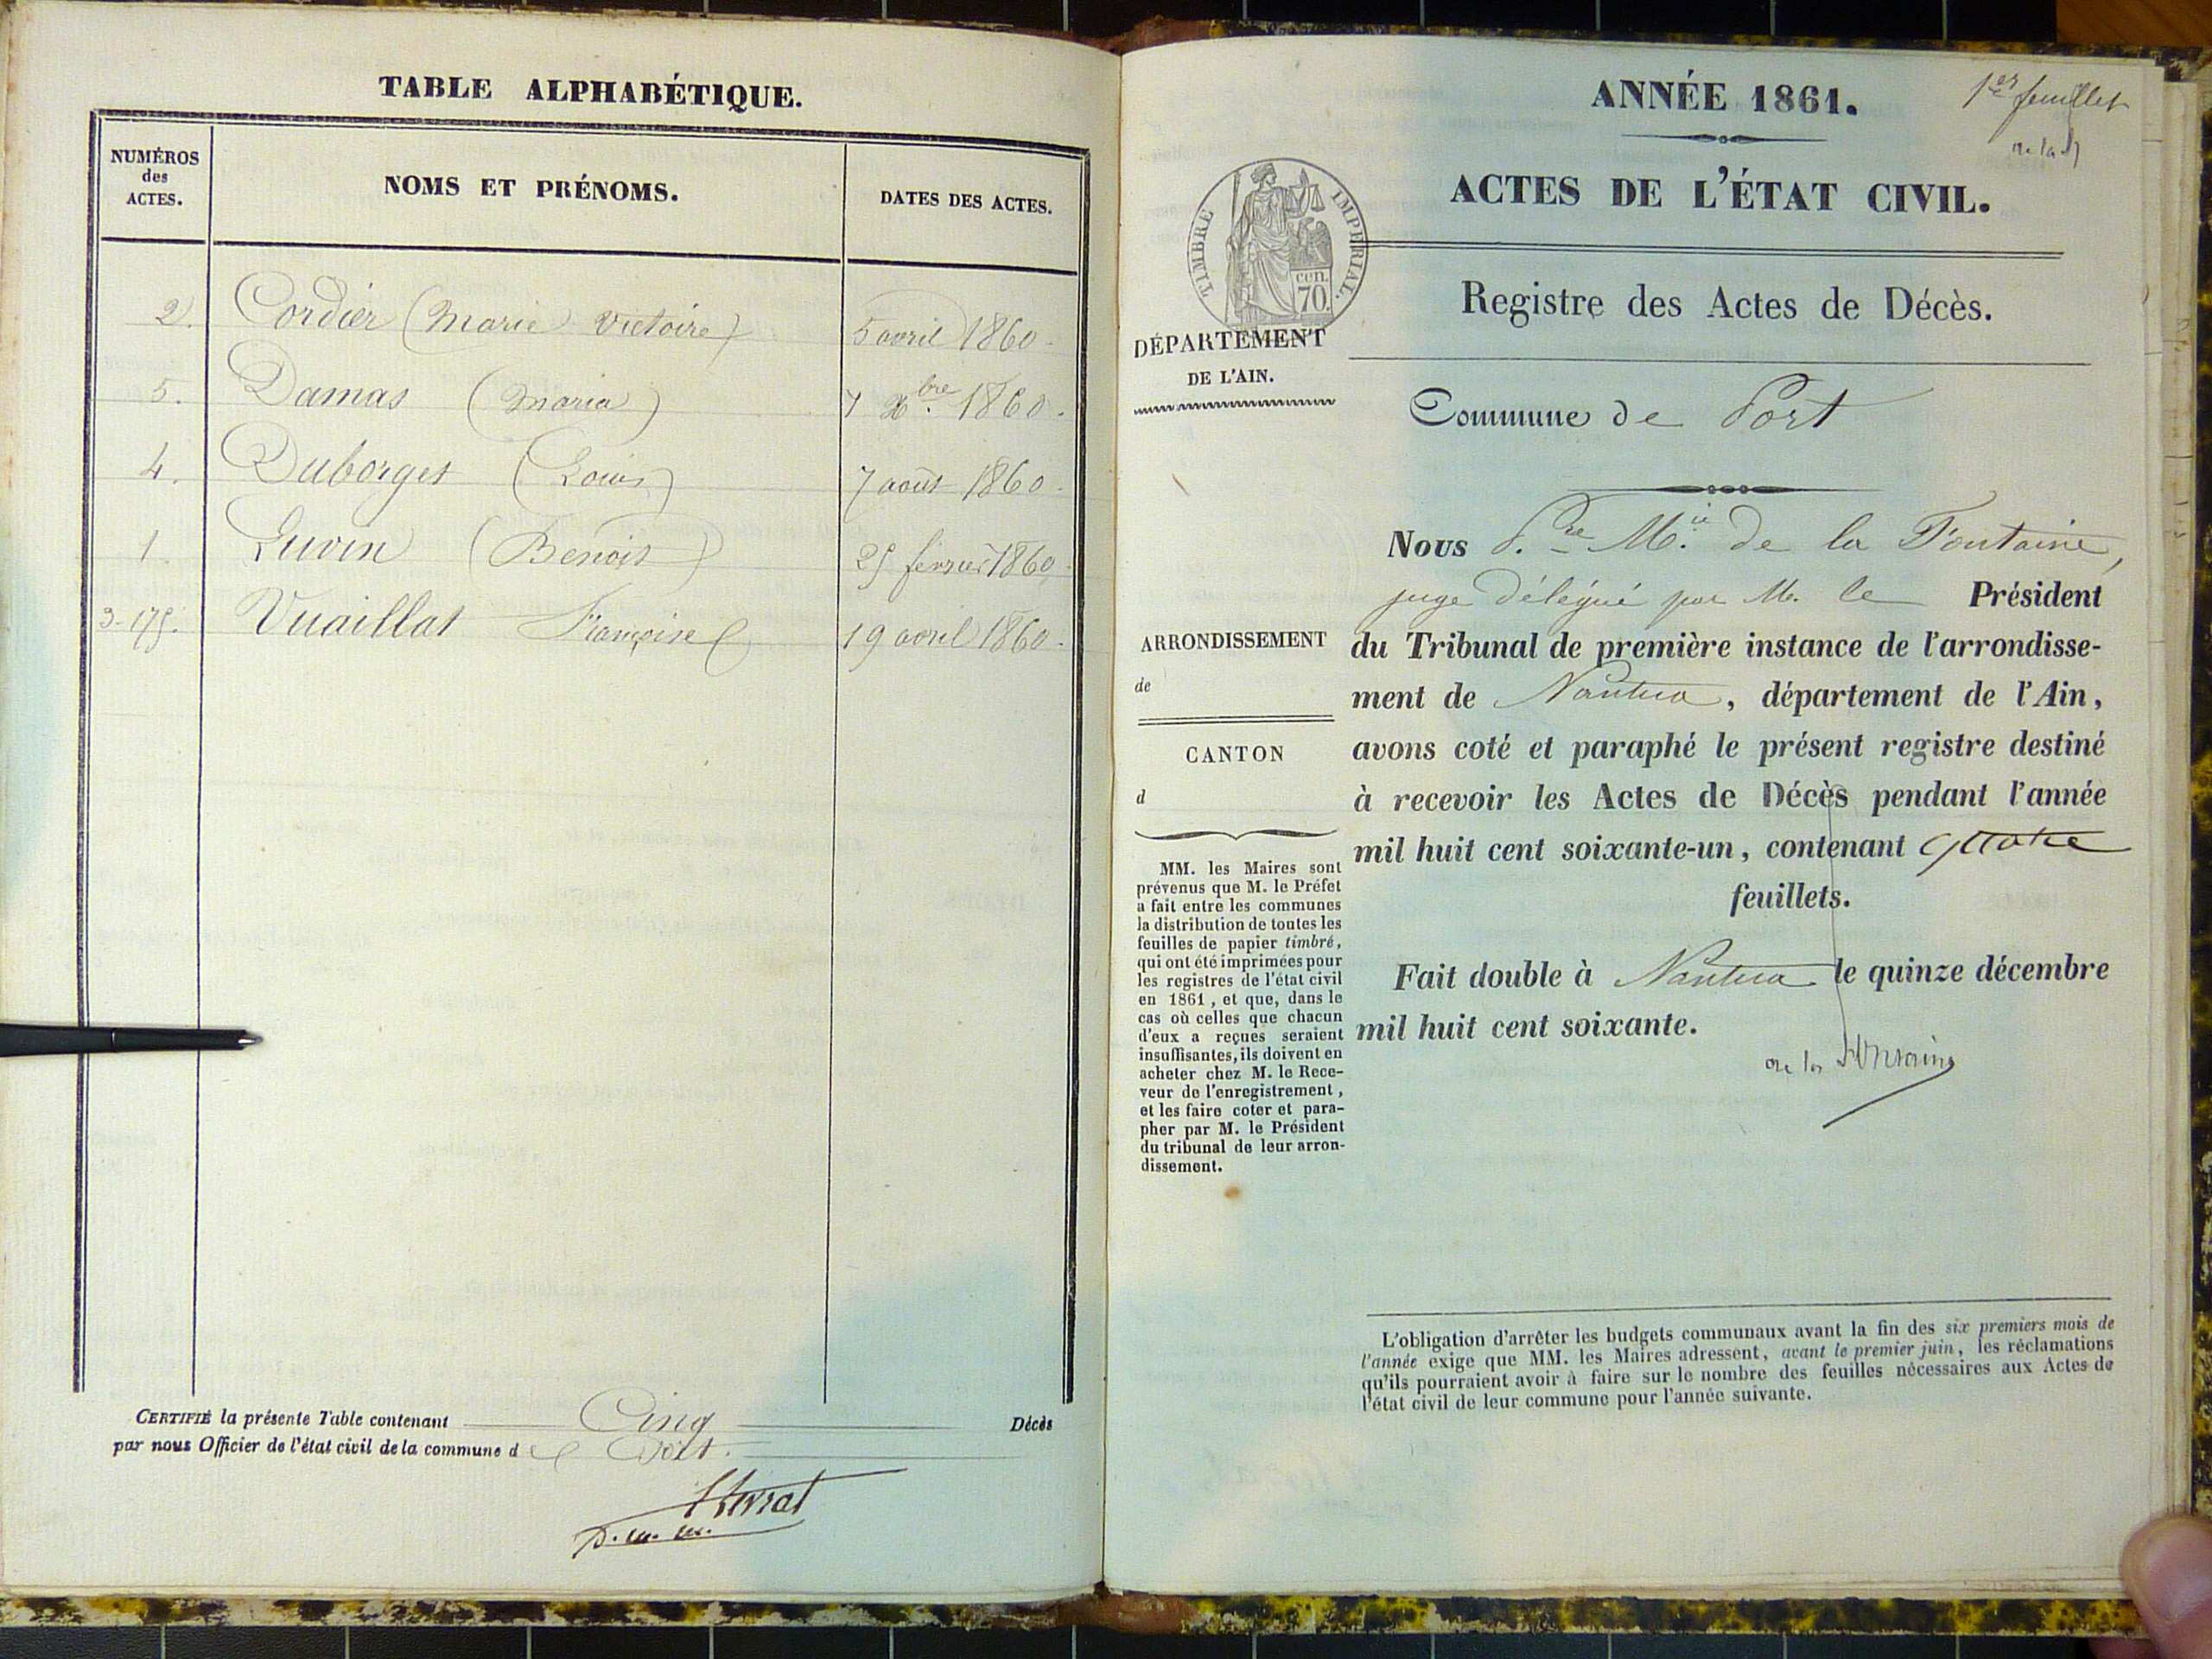 TABLE ALPHABÉTIQUE.
NUMÉROS
des
ACTES.
NOMS ET PRÉNOMS.
DATES DES ACTES.
2. Cordier (Marie Victoire) 5 avril 1860.
5. Damas (Maria) 7 Xbre 1860.
4. Duborget (Louis) 7 août 1860.
1 Luvin (Benoit) 25 février 1860.
3. Vuaillat Françoise 19 avril 1860.
CERTIFIÉ la présente Table contenant Cinq Décès
par nous Officier de l'état civil de la commune de Port.
ANNÉE 1861.
1er feuillet
ACTES DE L'ÉTAT CIVIL.
TIMBRE IMPÉRIAL.
cen.
70.
Registre des Actes de Décès.
DÉPARTEMENT
DE L'AIN.
Commune de Port
ARRONDISSEMENT
de
CANTON
d
MM. les Maires sont
prévenus que M. le Préfet
a fait entre les communes
la distribution de toutes les
feuilles de papier timbré,
qui ont été imprimées pour
les registres de l'état civil
en 1861, et que, dans le
cas où celles que chacun
d'eux a reçues seraient
insuffisantes, ils doivent en
acheter chez M. le Rece-
veur de l'enregistrement,
et les faire coter et para-
pher par M. le Président
du tribunal de leur arron-
dissement.
Nous P.re M.ie de la Fontaine,
juge délégué par M. le Président
du Tribunal de première instance de l'arrondisse-
ment de Nantua, département de l'Ain,
avons coté et paraphé le présent registre destiné
à recevoir les Actes de Décès pendant l'année
mil huit cent soixante-un, contenant quatre
feuillets.
Fait double à Nantua le quinze décembre
mil huit cent soixante.
de la Fontaine
L'obligation d'arrêter les budgets communaux avant la fin des six premiers mois de
l'année exige que MM. les Maires adressent, avant le premier juin, les réclamations
qu'ils pourraient avoir à faire sur le nombre des feuilles nécessaires aux Actes de
l'état civil de leur commune pour l'année suivante.